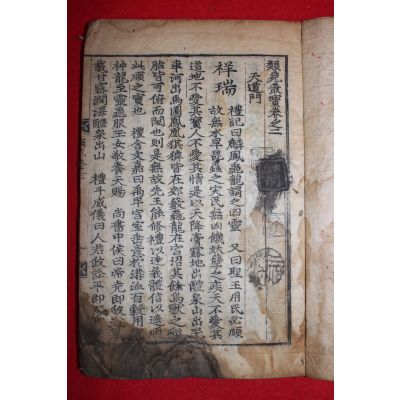 類苑叢寶卷之二
天道門
祥瑞 禮記曰麟鳳龜龍謂之四靈 又曰聖王用民必順
故無水旱昆蟲之灾民無凶饑妖孽之疾天不愛其
道地不愛其寶人不愛其情是以天降膏露地出醴泉山出器
車河出馬圖鳳凰猉獜皆在郊藪龜龍在宮沼其餘鳥獸之卵
胎皆可俯而闚也則是無故先王能修禮以達義體信以達順
此順之實也 禮含文嘉曰禹卑宮室垂意於溝洫百穀用
神龍至靈龜服玉女敬養天賜 尚書中侯曰帝堯即政
載甘露潤澤醴泉出山 禮斗威儀曰人君政訟平即